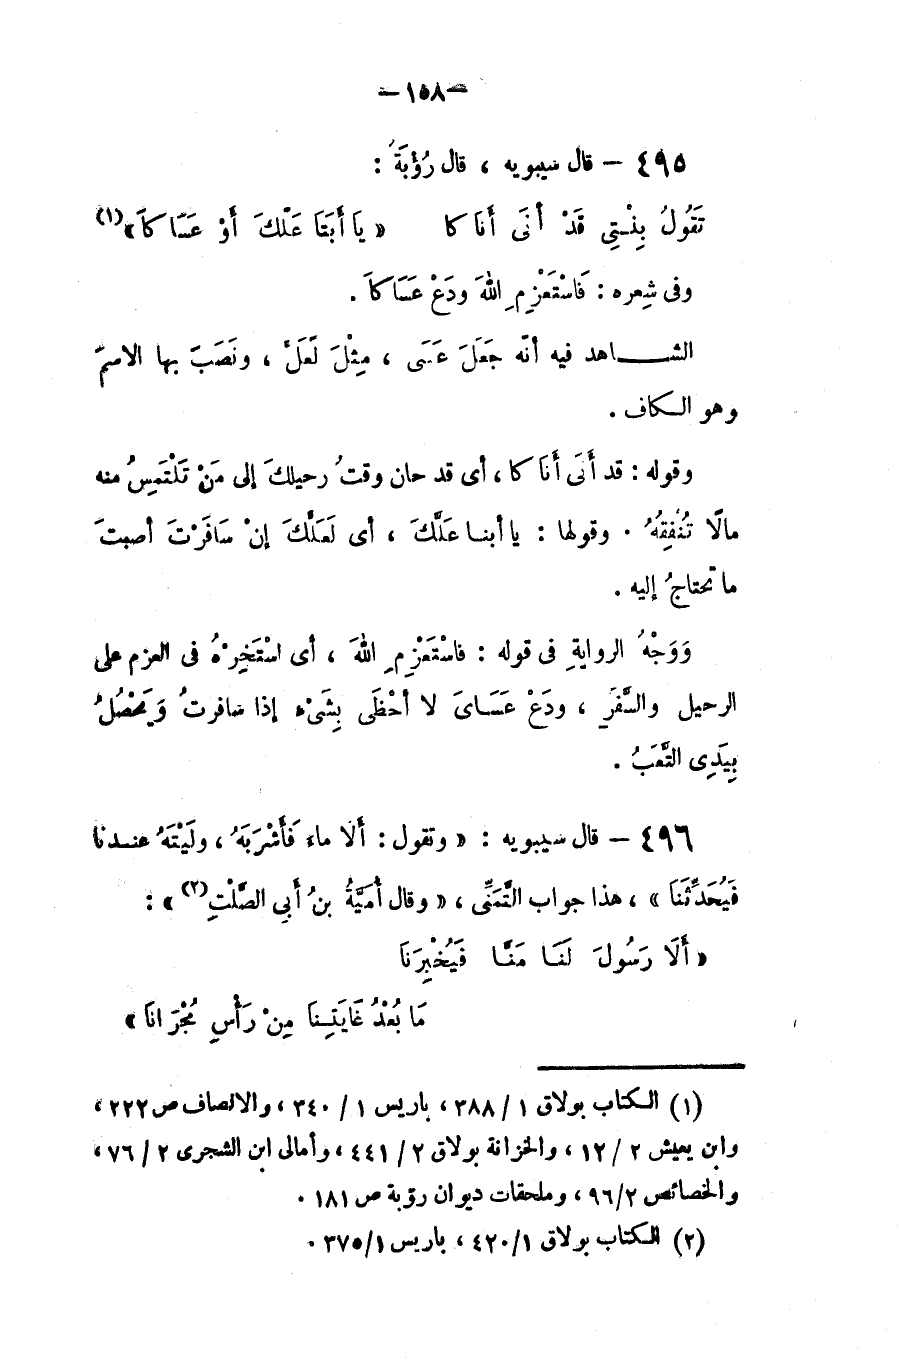 —١٥٨—
٤٩٥ — قال سيبويه ، قال رُؤْبَةُ :
تَقُولُ بِنْتِي قَدْ أَنَى أَنَاكَا « يَا أَبَتَا عَلَّكَ أَوْ عَسَاكَا »(١)
وفى شِعره : فَاسْتَعْزِمِ اللهَ ودَعْ عَسَاكَا .
الشــاهد فيه أنّه جَعَلَ عَسَى ، مِثْلَ لَعَلَّ ، ونَصَبَ بها الاسمَ
وهو الكاف .
وقوله : قد أَنَى أَنَاكا ، أى قد حان وقتُ رحيلكَ إلى مَنْ تَلْتَمِسُ منه
مالًا تُنْفِقُهُ . وقولها : يا أبتـا عَلَّكَ ، أى لَعَلَّكَ إنْ سَافَرْتَ أصبتَ
ما تحتاجُ إليه .
وَوَجْهُ الروايةِ فى قوله : فاسْتَعْزِمِ اللهَ ، أى اسْتَخِرْهُ فى العزم على
الرحيل والسَّفَرِ ، ودَعْ عَسَاىَ لا أحْظَى بِشَىْءٍ إذا سافرتُ وَيَحْصُلُ
بِيَدِى التَّعَبُ .
٤٩٦ — قال سيبويه : « وتقول : أَلَا ماءَ فَأَشْرَبَهُ ، ولَيْتَهُ عنـدنا
فَيُحَدِّثَنَا » ، هذا جواب التَّمَنِّى ، « وقال أُمَيَّةُ بنُ أَبِى الصَّلْتِ(٢) » :
« أَلَا رَسُولَ لَنَـا مَنَّا فَيُخْبِرَنَا
مَا بُعْدُ غَايَتِـنَا مِنْ رَأْسِ مُجْرَانَا »
(١) الكتاب بولاق ١ / ٣٨٨ ، باريس ١ / ٣٤٠ ، والانصاف ص ٢٢٢ ،
وابن يعيش ٢ / ١٢ ، والخزانة بولاق ٢ / ٤٤١ ، وأمالى ابن الشجرى ٢ / ٧٦ ،
والخصائص ٢/ ٩٦ ، وملحقات ديوان رؤبة ص ١٨١ .
(٢) الكتاب بولاق ١/ ٤٢٠ ، باريس ١/ ٣٧٥ .